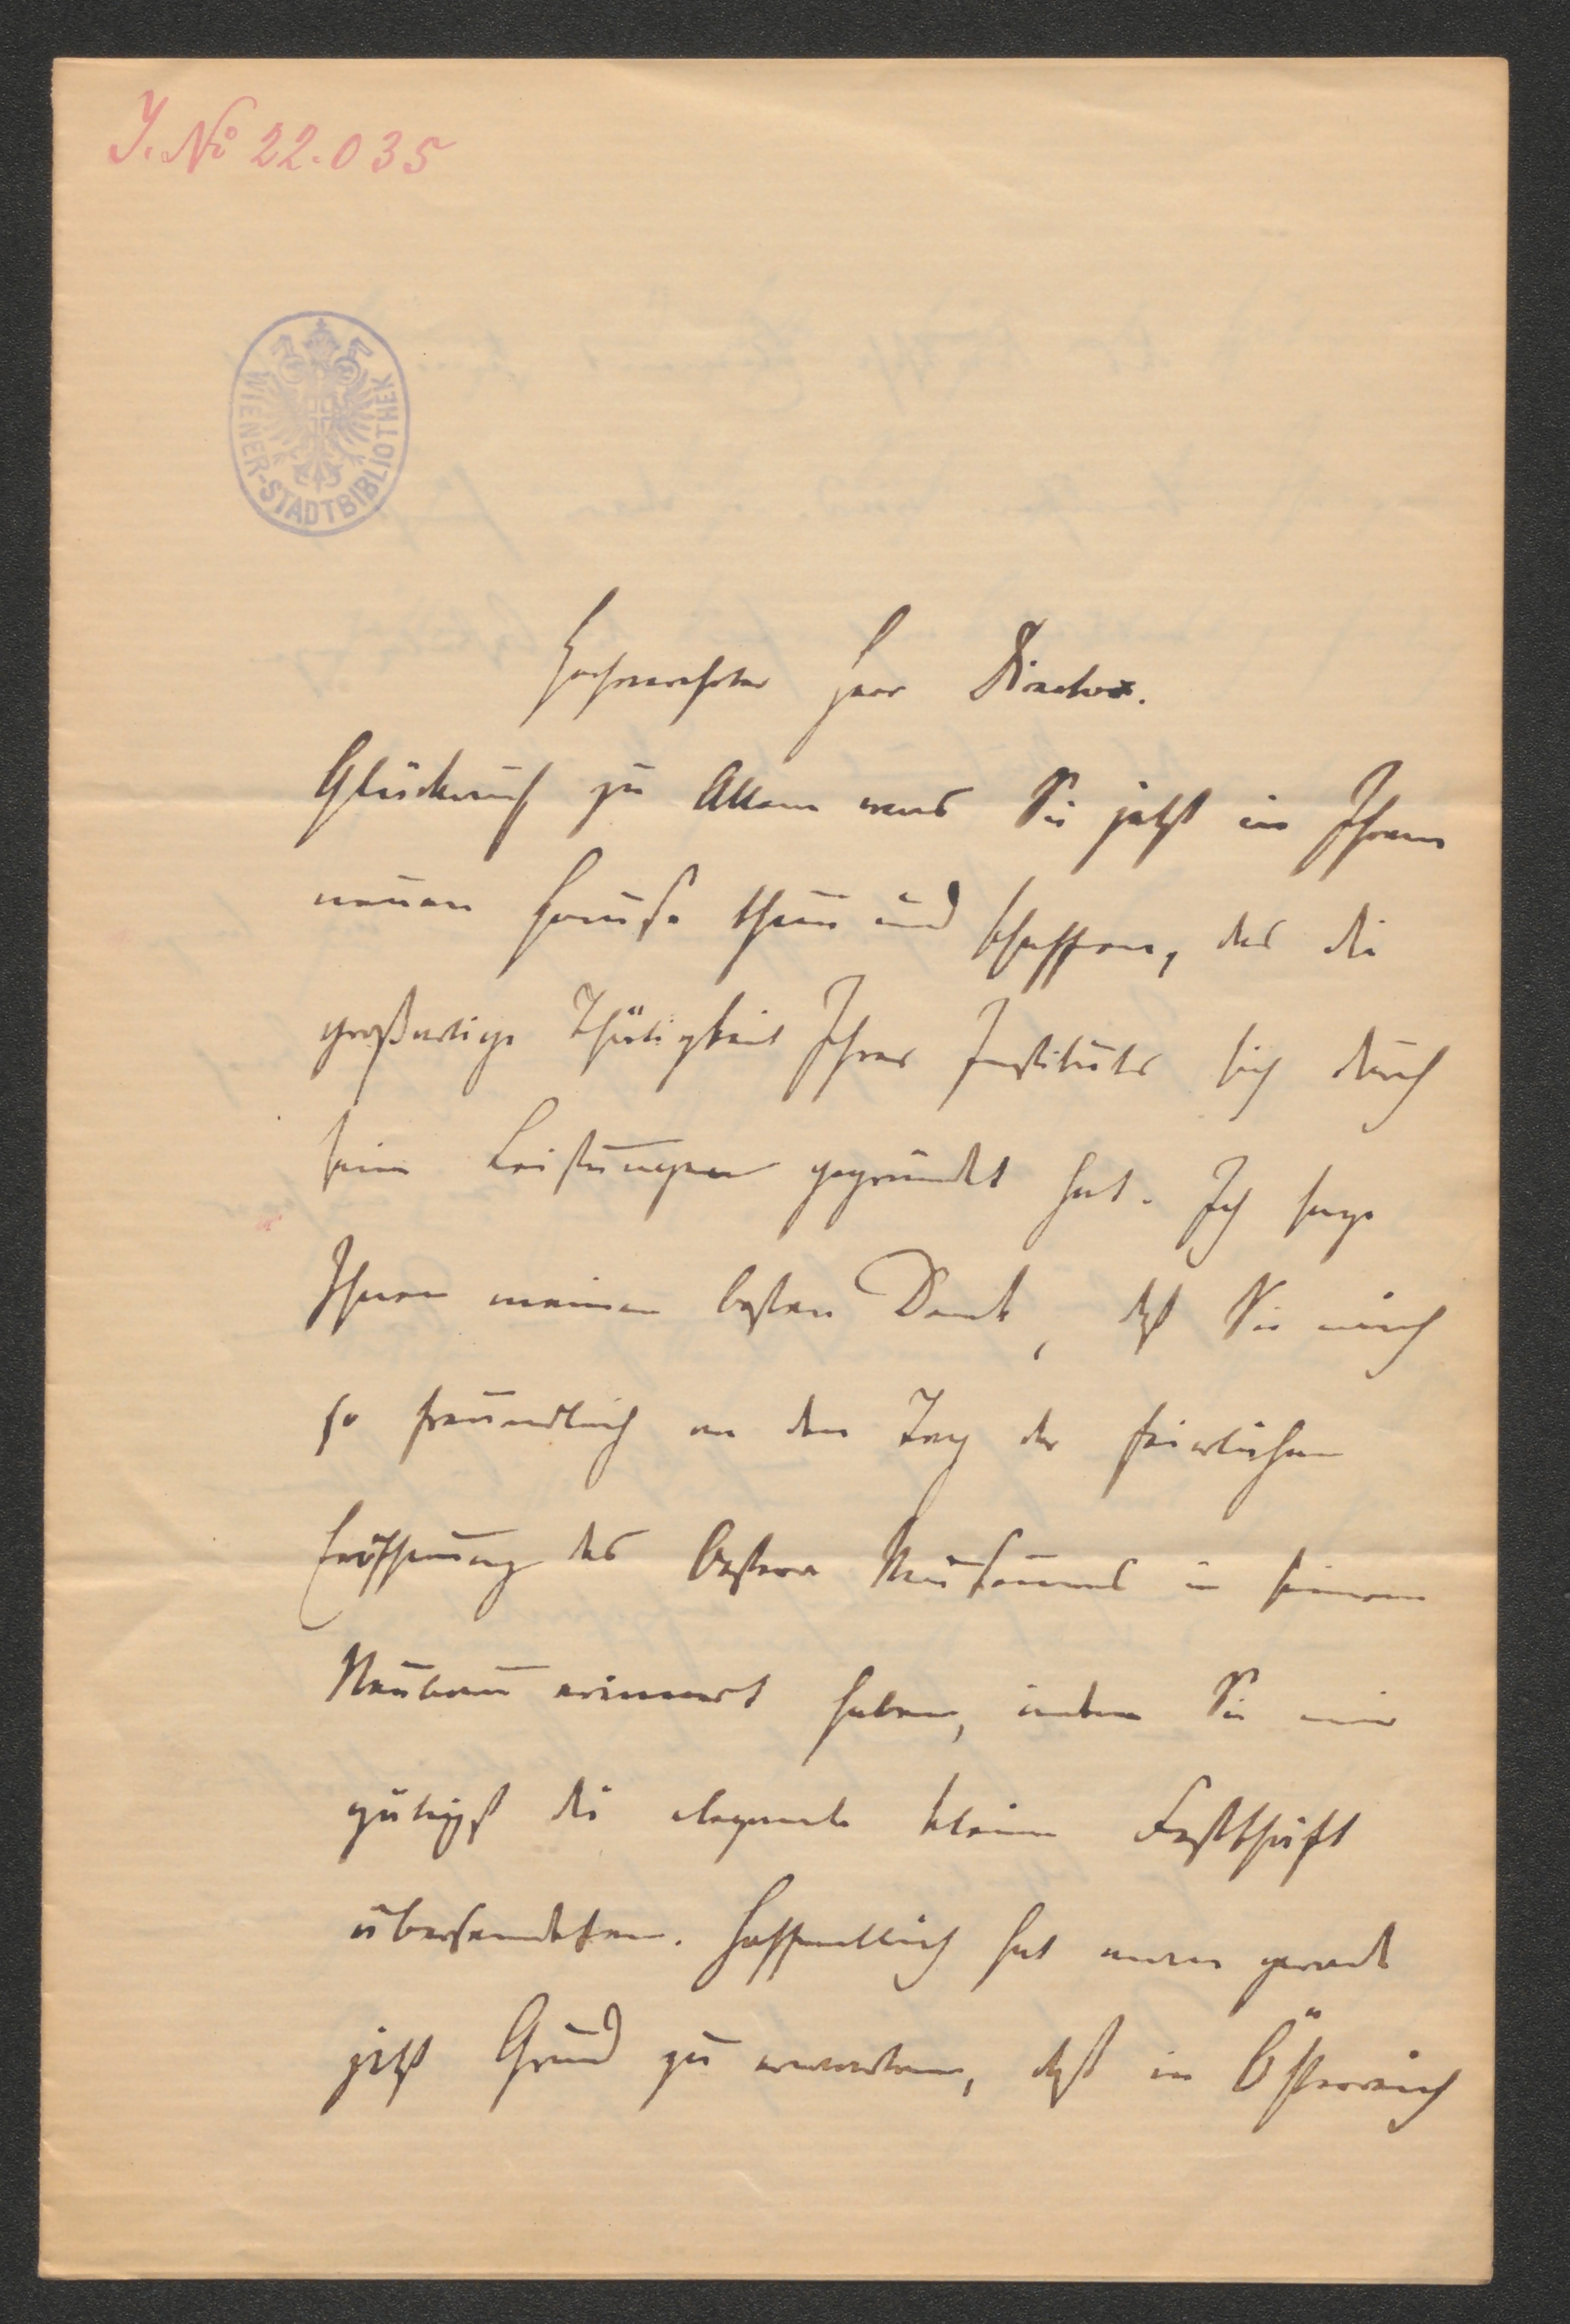 J. No 22.035
WIENER-STADTBIBLIOTHEK
Hochverehrter Herr Director.
Glückauf zu Allem was Sie jetzt in Ihrem
neuen Hause thun und schaffen, das die
großartige Thätigkeit Ihres Instituts sich durch
seine Leistungen gegründet hat. Ich sage
Ihnen meinen besten Dank, dß Sie mich
so freundlich an den Tag der feierlichen
Eröffnung des Österr Museums in seinem
Neubau erinnert haben, indem Sie mir
gütigst die elegante kleine Festschrift
übersendeten. Hoffentlich hat man gerade
jetzt Grund zu erwarten, dß in Österreich